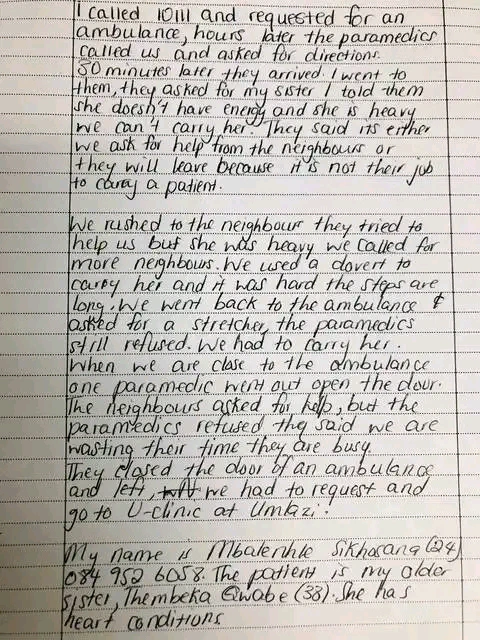 I called 10111 and requested for an
ambulance, hours later the paramedics
called us and asked for directions.
50 minutes later they arrived. I went to
them, they asked for my sister I told them
she doesn't have energy and she is heavy
we can't carry her. They said its either
we ask for help from the neighbours or
they will leave because it is not their job
to carry a patient.
We rushed to the neighbours they tried to
help us but she was heavy we called for
more neighbours. We used a dovert to
carry her and it was hard the steps are
long. We went back to the ambulance &
asked for a stretcher, the paramedics
still refused. We had to carry her.
When we are close to the ambulance
one paramedic went out open the door.
The neighbours asked for help, but the
paramedics refused they said we are
wasting their time they are busy.
They closed the door of an ambulance
and left, we had to request and
go to U-clinic at Umlazi.
My name is Mbalenhle Sikhosana (24)
084 952 6058. The patient is my older
sister, Thembeka Gwabe (38). She has
heart conditions